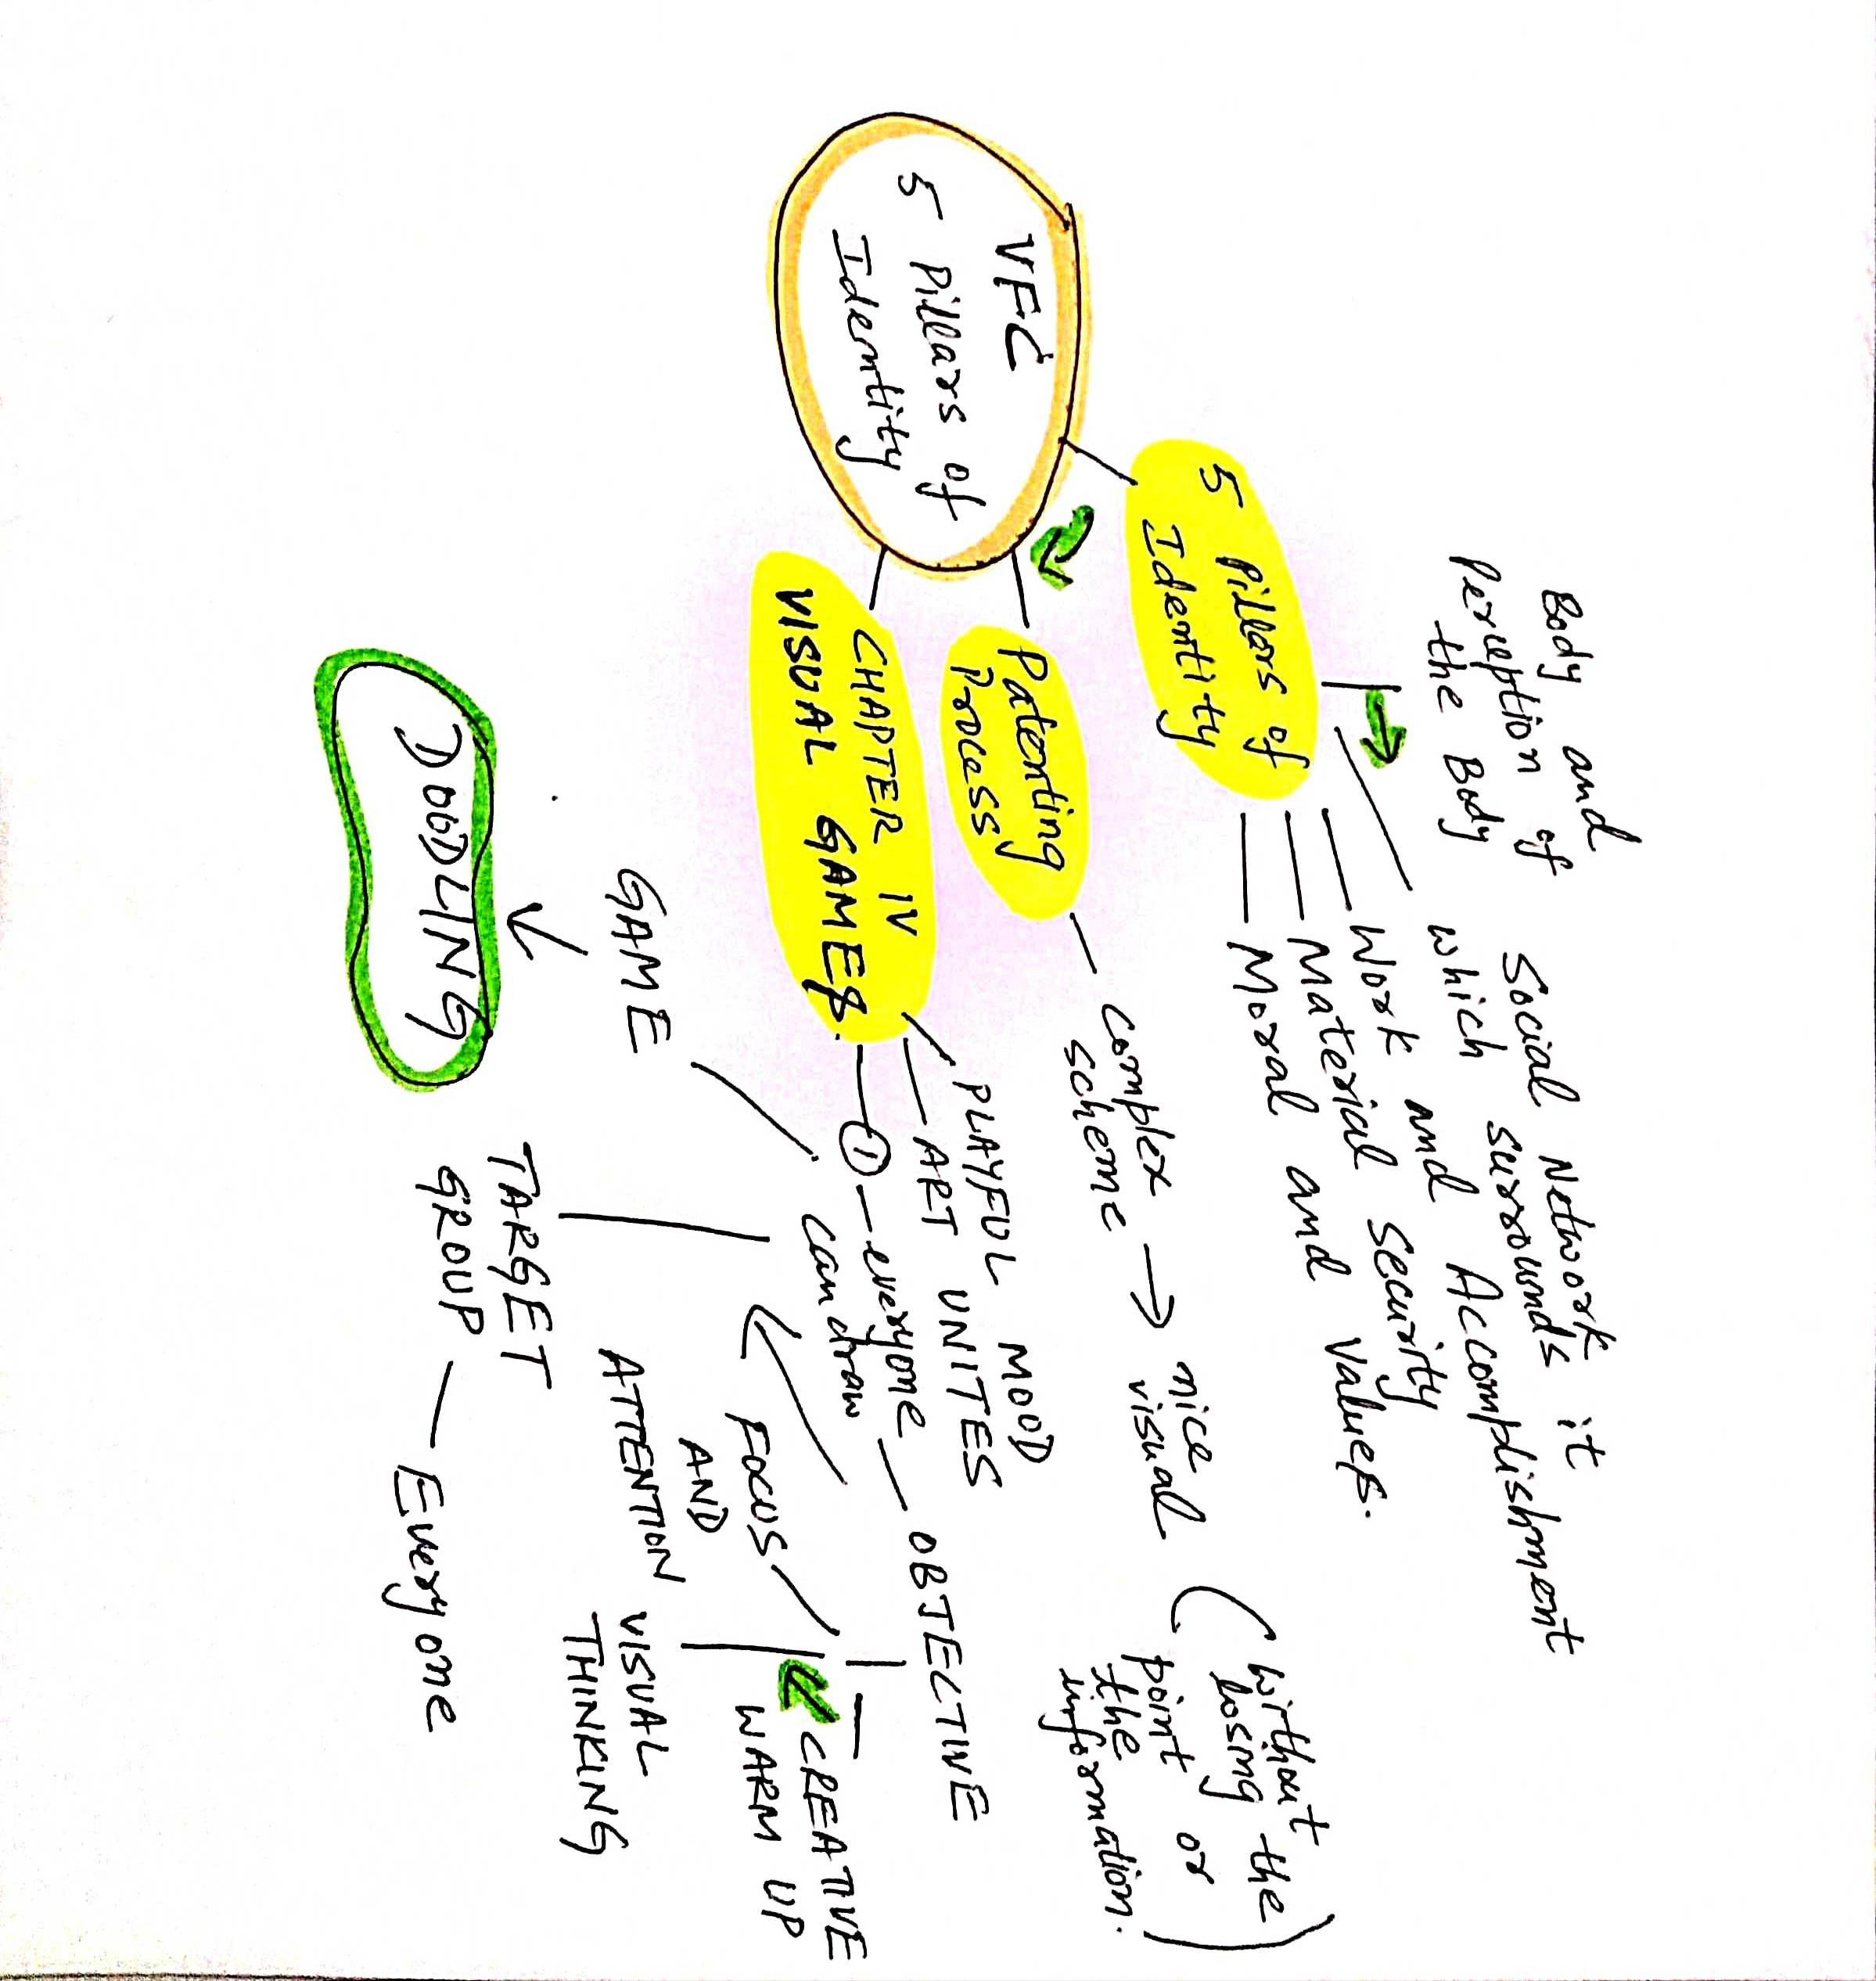 Body and
Perception of
the Body
Social Network
which surrounds it
Work and Accomplishment
Material Security
Moral and Values.
5 Pillars of
Identity
VFC
5 Pillars of
Identity
Patenting
Process
complex
scheme → nice
visual
(without
losing the
point or
the
information.)
CHAPTER IV
VISUAL GAMES.
PLAYFUL MOOD
ART UNITES
1 everyone
can draw
OBJECTIVE
CREATIVE
WARM UP
FOCUS
AND
ATTENTION
VISUAL
THINKING
GAME
DOODLING
TARGET
GROUP
Everyone